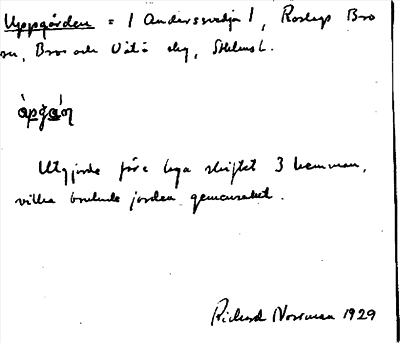 Uppgården = 1 Andersvedja 1, Roslags Bro
sn, Bro och Vätö skg, Sthlms l.
Utgjorde före laga skiftet 3 hemman,
vilka brukade jorden gemensamt.
Rickard Norrman 1929